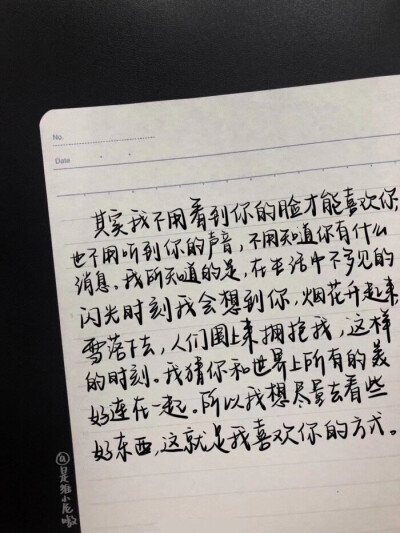 No.
Date
其实我不用看到你的脸才能喜欢你,
也不用听到你的声音,不用知道你有什么
消息。我所知道的是,在生活中不多见的
闪光时刻我会想到你,烟花升起来
雪落下去,人们围上来拥抱我,这样
的时刻。我猜你和世界上所有的美
好连在一起。所以我想尽量去看些
好东西,这就是我喜欢你的方式。